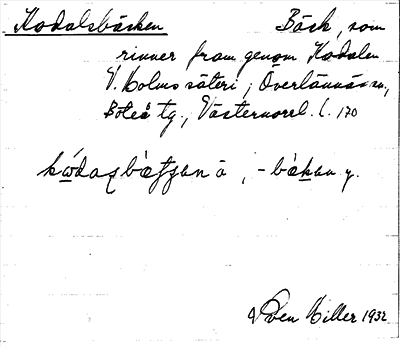 Kodalsbäcken Bäck, som
rinner fram genom Kodalen
V. Holms säteri, Överlännäs sn,
Boteå tg., Västernorrl. l. 170
-båkan y.
Sven Hiller 1932